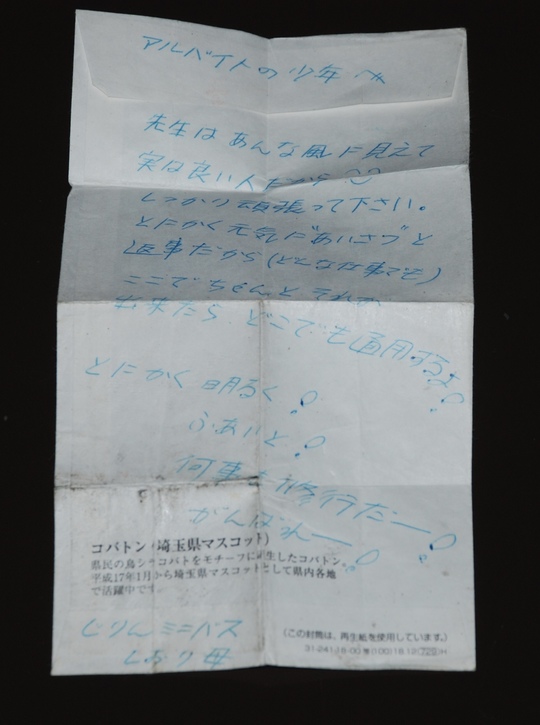 アルバイトの少年へ
先生はあんな風に見えて
実は良い人だから
しっかり頑張って下さい。
とにかく元気に"あいさつ"と
返事だから(どんな仕事でも)
ここでちゃんとそれが
出来たら どこでも通用するよ!
とにかく 明るく!
ふぁいと!
何事も修行だー!
がんばれー!
コバトン(埼玉県マスコット)
県民の鳥シラコバトをモチーフに誕生したコバトン。
平成17年1月から埼玉県マスコットとして県内各地
で活躍中です。
(この封筒は、再生紙を使用しています。)
じりんミニバス
しおり母